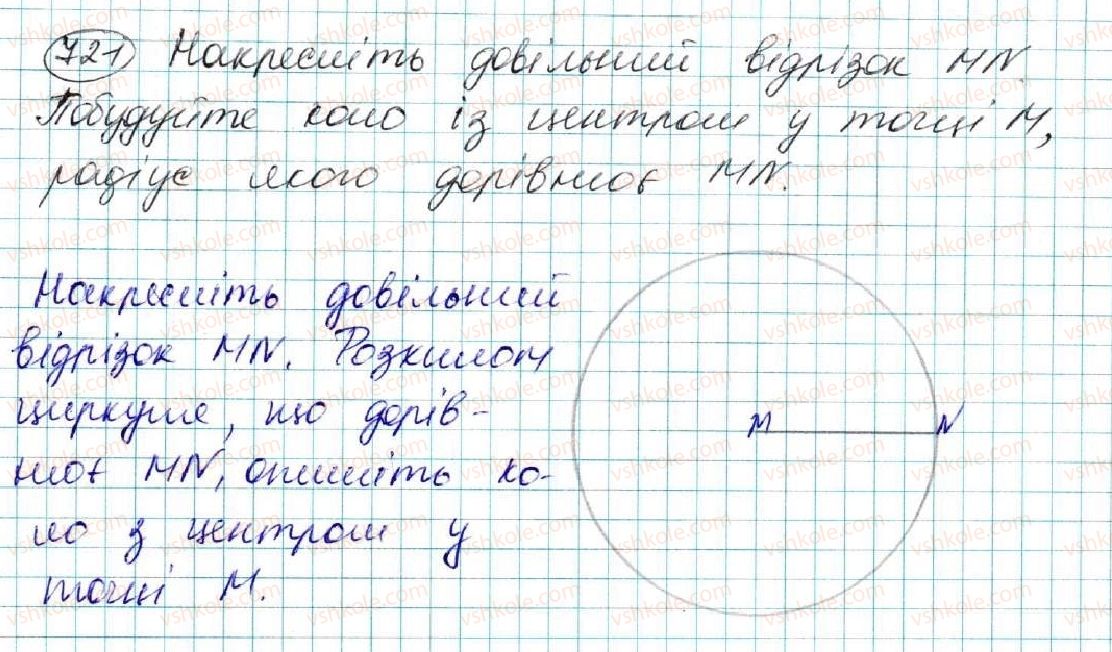 721 Накресліть довільний відрізок MN.
Побудуйте коло із центром у точці M,
радіус якого дорівнює MN.
Накресліть довільний
відрізок MN. Розхилом
циркуля, що дорів-
нює MN, опишіть ко-
ло з центром у
точці M.
M N
vshkole.com